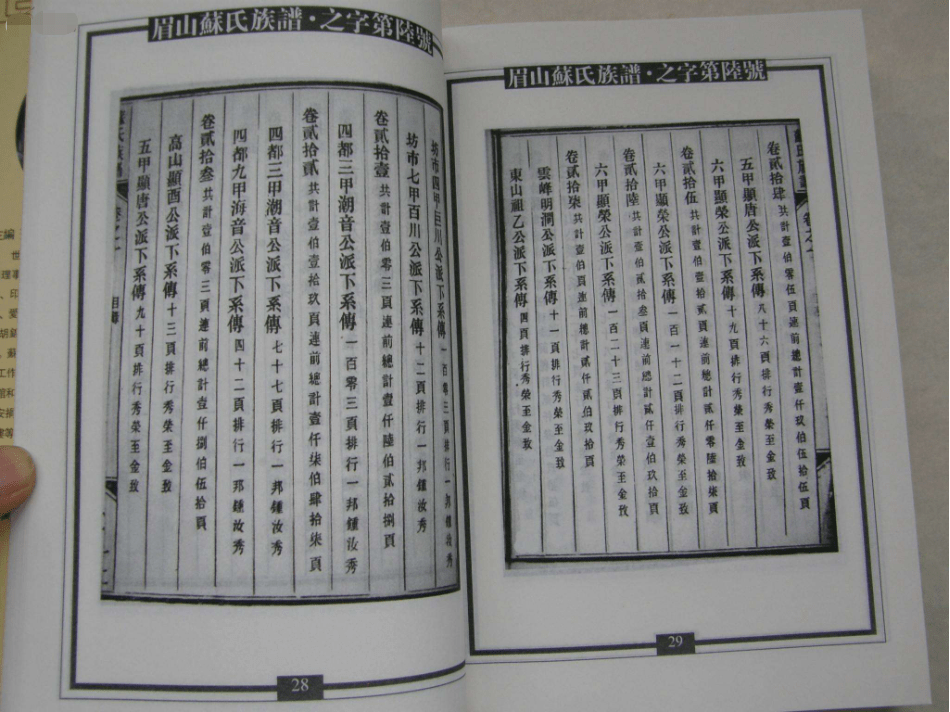 眉山蘇氏族譜·之字第陸號
坊市四甲百川公派下系傳一百零三頁排行一邦鍾汝秀
坊市七甲百川公派下系傳十二頁排行一邦鍾汝秀
卷貳拾壹共計壹伯壹零三頁連前總計壹仟陸伯貳拾捌頁
四都三甲潮音公派下系傳一百零三頁排行一邦鍾汝秀
卷貳拾貳共計壹伯壹拾玖頁連前總計壹仟柒伯肆拾柒頁
四都三甲潮音公派下系傳七十七頁排行一邦鍾汝秀
四都九甲海音公派下系傳四十二頁排行一邦鍾汝秀
卷貳拾叁共計壹伯零三頁連前總計壹仟捌伯伍拾頁
高山顯酉公派下系傳十三頁排行秀榮至金致
五甲顯唐公派下系傳九十頁排行秀榮至金致
目錄
28
眉山蘇氏族譜·之字第陸號
卷貳拾肆共計壹伯零伍頁連前總計壹仟玖伯伍拾伍頁
五甲顯唐公派下系傳八十六頁排行秀榮至金致
六甲顯榮公派下系傳十九頁排行秀榮至金致
卷貳拾伍共計壹伯壹拾貳頁連前總計貳仟零陸拾柒頁
六甲顯榮公派下系傳一百一十二頁排行秀榮至金致
卷貳拾陸共計壹伯貳拾叁頁連前總計貳仟壹伯玖拾頁
六甲顯榮公派下系傳一百二十三頁排行秀榮至金致
卷貳拾柒共計壹伯頁連前總計貳仟貳伯玖拾頁
雲峰明潤公派下系傳十一頁排行秀榮至金致
東山祖乙公派下系傳四頁排行秀榮至金致
29